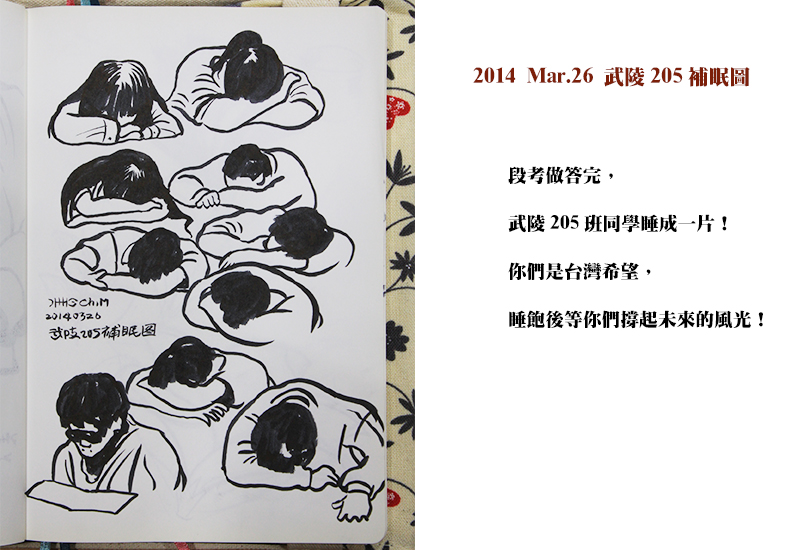 CHIM
20140326
武陵205補眠圖
2014 Mar.26 武陵 205 補眠圖
段考做答完，
武陵 205 班同學睡成一片！
你們是台灣希望，
睡飽後等你們撐起未來的風光！